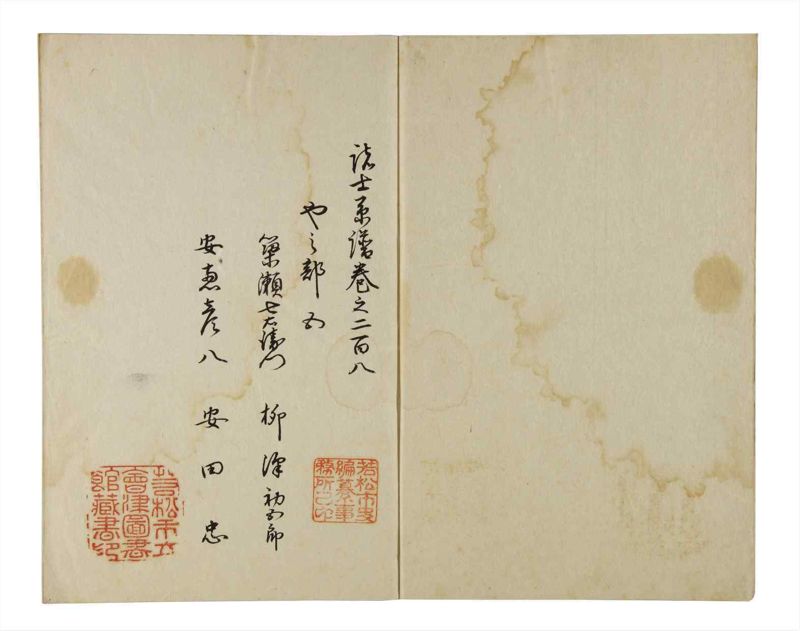 諸士系譜巻之二百八
や之部 五
簗瀬七左衛門 柳澤初五郎
安恵彦八 安田忠
若松市史
編纂事
務所之印
若松市立
會津圖書
館藏書印